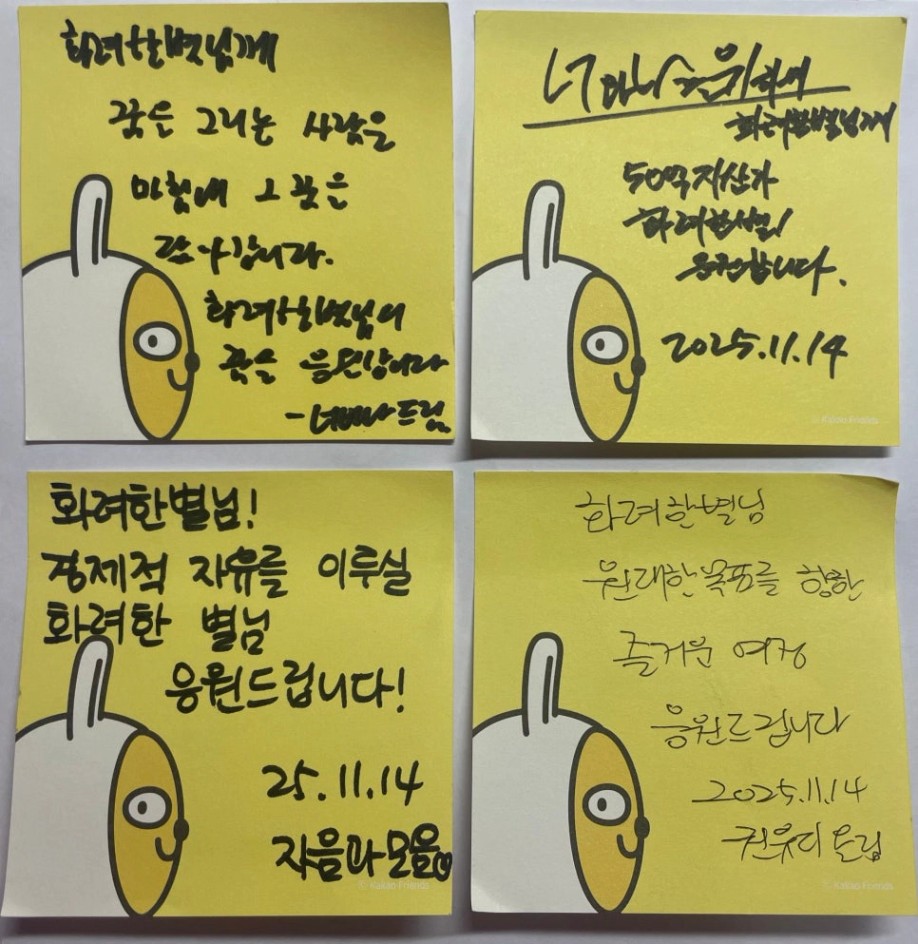 화려한별님께
꿈을 그리는 사람은
마침내 그 꿈을
닮아갑니다.
화려한별님의
꿈을 응원합니다
-너바나 드림
너나위
화려한별님께
50억 자산가
화려한별님!
응원합니다.
2025.11.14
© Kakao Friends
화려한별님!
경제적 자유를 이루실
화려한 별님
응원드립니다!
25.11.14
자음과모음
© Kakao Friends
화려한별님
원대한 목표를 향한
즐거운 여정
응원드립니다
2025.11.14
권유디 드림
© Kakao Friends